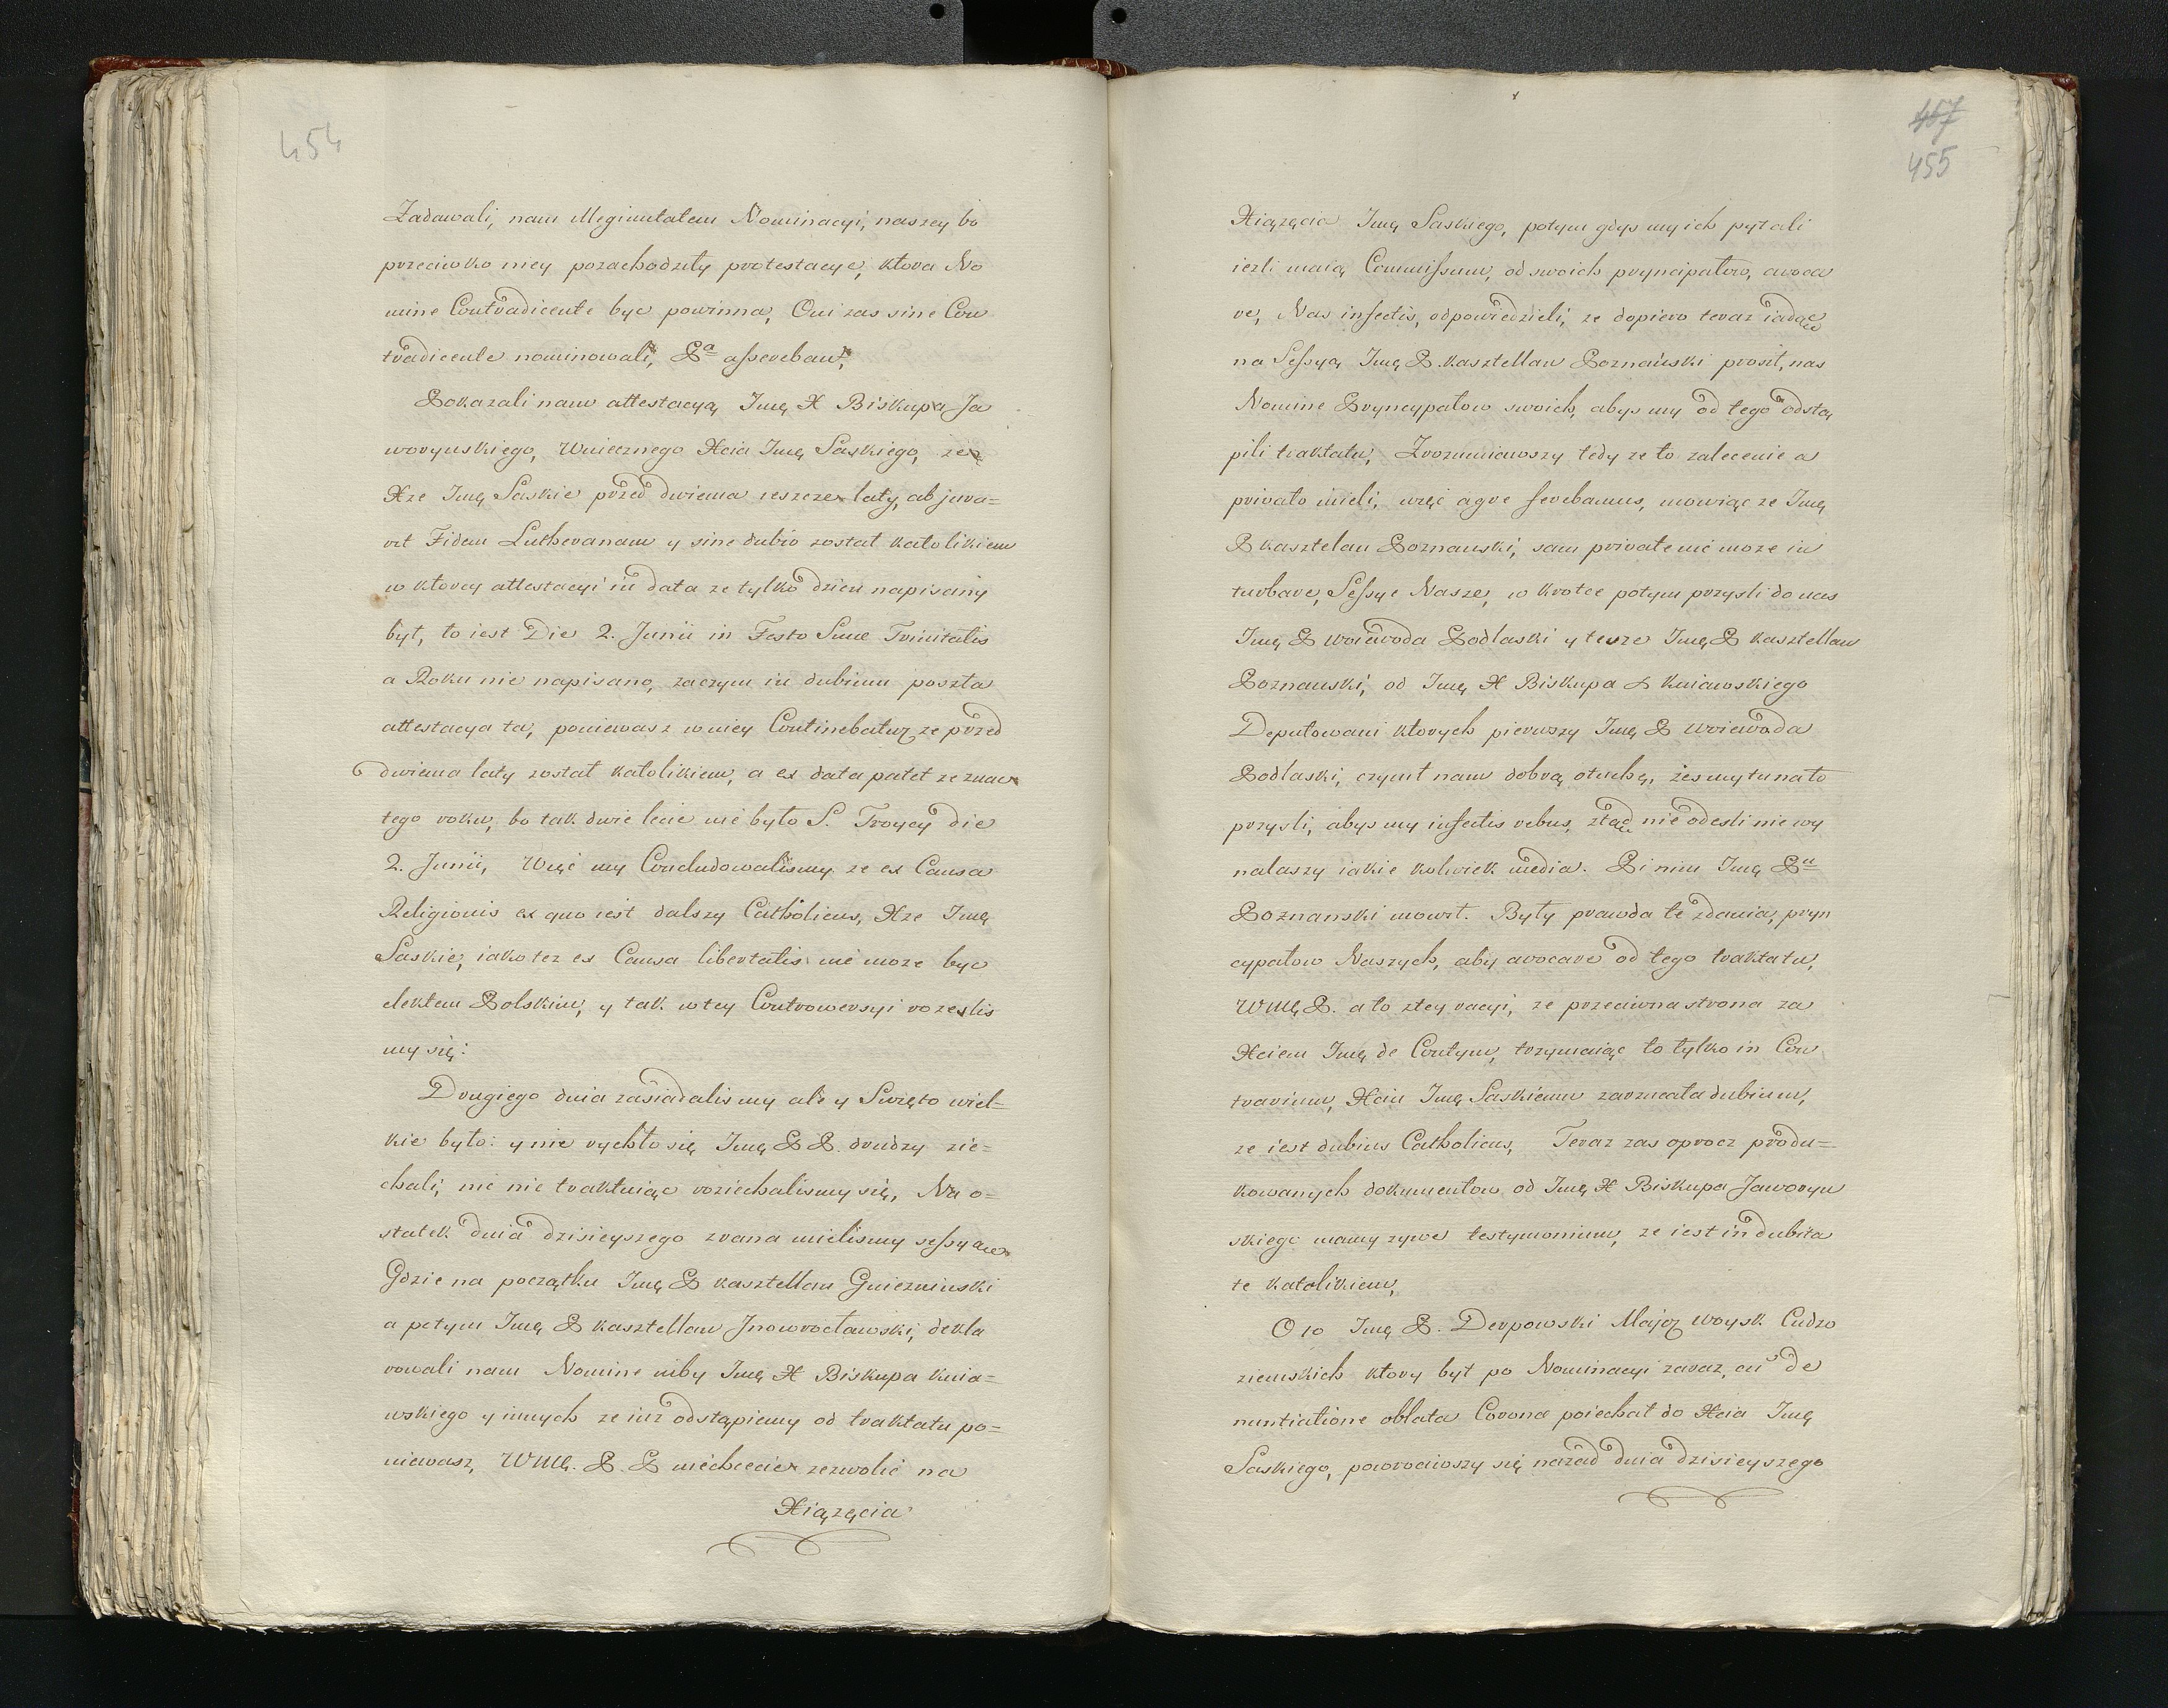 454
Zadawali, nam illegimitatem Nominacyi, naszey bo
przeciwko niey pozachodziły protestacye, ktora No
mine Contradicente byc powinna, Oni zas sine Con
tradicente nominowali, &a asserebant,
Pokazali nam attestacyą Imę X Biskupa Ja
worynskiego, Wniecznego Xcia Imę Saskiego, ze
Xze Imę Saskie przed dwiema ieszcze laty, abjura=
vit Fidem Lutheranam y sine dubio został katolikiem
w ktorey attestacyi in data ze tylko dzien napisany
był, to iest Die 2. Junii in Festo Smæ Trinitatis
a Roku nie napisano, zaczym in dubium poszła
attestacya ta, poniewasz w niey Continebatur ze przed
dwiema laty został katolikiem, a ex data patet ze znac
tego roku, bo tak dwie lecie nie było S. Troycy die
2. Junii, Więc my Concludowalismy ze ex Causa
Religionis ex quo iest dalszy Catholicus, Xze Imę
Saskie, iako tez ex Causa libertatis nie moze byc
elektem Polskim, y tak w tey Controwersyi rozeslis
my się:
Drugiego dnia zasiadalismy ale y Swięto wiel=
kie było: y nie rychło się Imę PP. drudzy zie=
chali, nic nie traktuiąc roziechalismy się, Na o=
statek dnia dzisieyszego zrana mielismy sessyą
Gdzie na początku Imę P kasztellan Gnieznienski
a potym Imę P kasztellan Jnowrocławski, dekla
rowali nam Nomine niby Imę X Biskupa kuia=
wskiego y innych ze iuz odstąpiemy od traktatu po=
niewasz, WMę. P. P niechcecie zezwolić na
Xiązęcia
467
455
Xiązęcia Imę Saskiego, potym gdys my ich pytali
iezli maią Commissum, od swoich pryncipałow, avoca
re, Nas infectis, odpowiedzieli, ze dopiero teraz iadąc
na Sessyą Imę P. kasztellan Poznański prosił, nas
Nomine Pryncypałow swoich, abys my od tego odstą
pili traktatu, Zrozumiawszy tedy ze to zalecenie a
privato mieli, więc agre ferebamus, mowiąc ze Imę
P kasztelan Poznanski, sam private nie moze in
turbare, Sessye Nasze, w krotce potym przysli do nas
Imę P woiewoda Podlaski y tenze Imę P kasztellan
Poznanski, od Imę X Biskupa kuiawskiego
Deputowani ktorych pierwszy Imę P woiewoda
Podlaski, czynił nam dobrą otuchę, żes my tu na to
przysli, abys my infectis rebus, ztąd nie odesli nie wy
nalaszy iakie kolwiek media. Po nim Imę Pn
Poznanski mowił. Były prawda te zdania, pryn
cypałow Naszych, aby avocare od tego traktatu,
WMę P. a to ztey racyi, ze przeciwna strona za
Xciem Imę de Contym, trzymaiąc to tylko in Con
trarium, Xciu Imę Saskiemu zarzucała dubium,
ze iest dubius Catholicus, Teraz zas oprocz produ=
kowanych dokumentow od Imę X Biskupa Jaworyn
skiego mamy zywe testymonium, ze iest in dubita
te katolikiem,
O to Imę P. Derpowski Major woysk Cudzo
ziemskich ktory był po Nominacyi zaraz, cu de
nuntiatione oblata Corona poiechał do Xcia Imę
Saskiego, powrociwszy się nazad dnia dzisieyszego